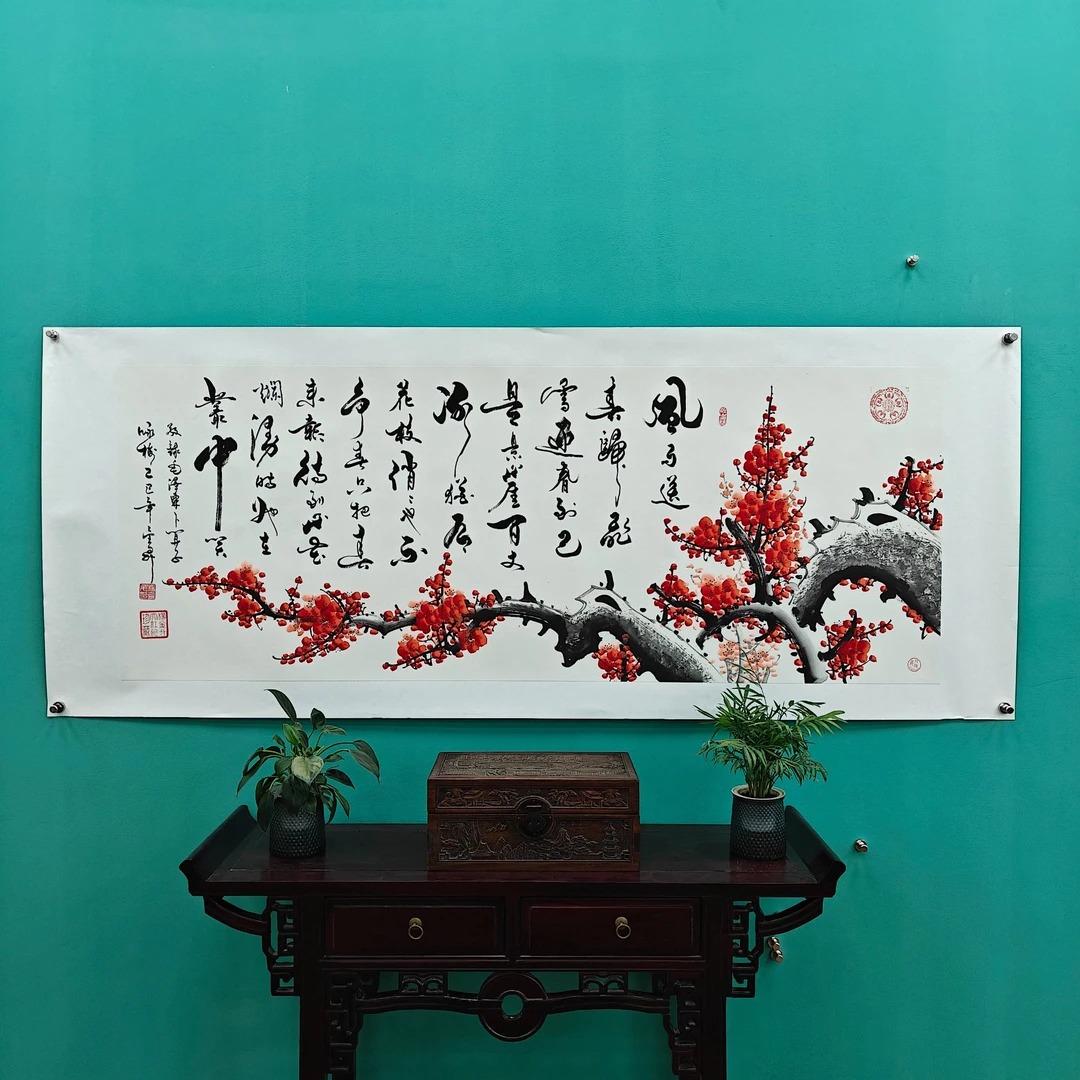 風雨送
春歸飛
雪迎春到已
是懸崖百丈
冰猶有
花枝俏〻也不
争春只把春
来報待到山花
爛漫時她在
叢中笑
敬録毛泽東卜算子
咏梅乙巳年